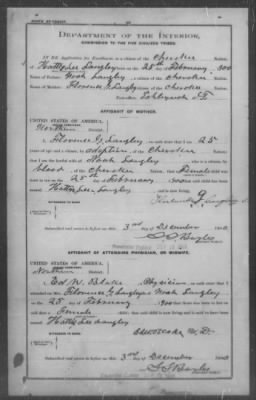 DEPARTMENT OF THE INTERIOR,
COMMISSION TO THE FIVE CIVILIZED TRIBES.
IN RE Application for Enrollment, as a citizen of the Cherokee Nation,
of Hattie Lee Langley, born on the 25th day of February, 1900
Name of Father: Noah Langley, a citizen of the Cherokee Nation.
Name of Mother: Florence G. Langley, a citizen of the Cherokee Nation.
AFFIDAVIT OF MOTHER.
UNITED STATES OF AMERICA,
Northern District.
I, Florence G. Langley, on oath state that I am 25
years of age and a citizen, by adoption, of the Cherokee Nation;
that I am the lawful wife of Noah Langley, who is a citizen, by
blood, of the Cherokee Nation; that a Female child was
born to me on the 25th day of February, 1900; that said child has been
named Hattie Lee Langley, and is now living.
Subscribed and sworn to before me this 3rd day of December, 1900.
AFFIDAVIT OF ATTENDING PHYSICIAN, OR MIDWIFE.
UNITED STATES OF AMERICA,
Northern District.
I, Ed. N. Blake, a Physician, on oath state that I
attended on Mrs. Florence G. Langley, wife of Noah Langley,
on the 25 day of February, 1900; that there was born to her on
said date a Female child; that said child is now living and is said to have been
named Hattie Lee Langley
M. D.
Subscribed and sworn to before me this 3rd day of December, 1900.